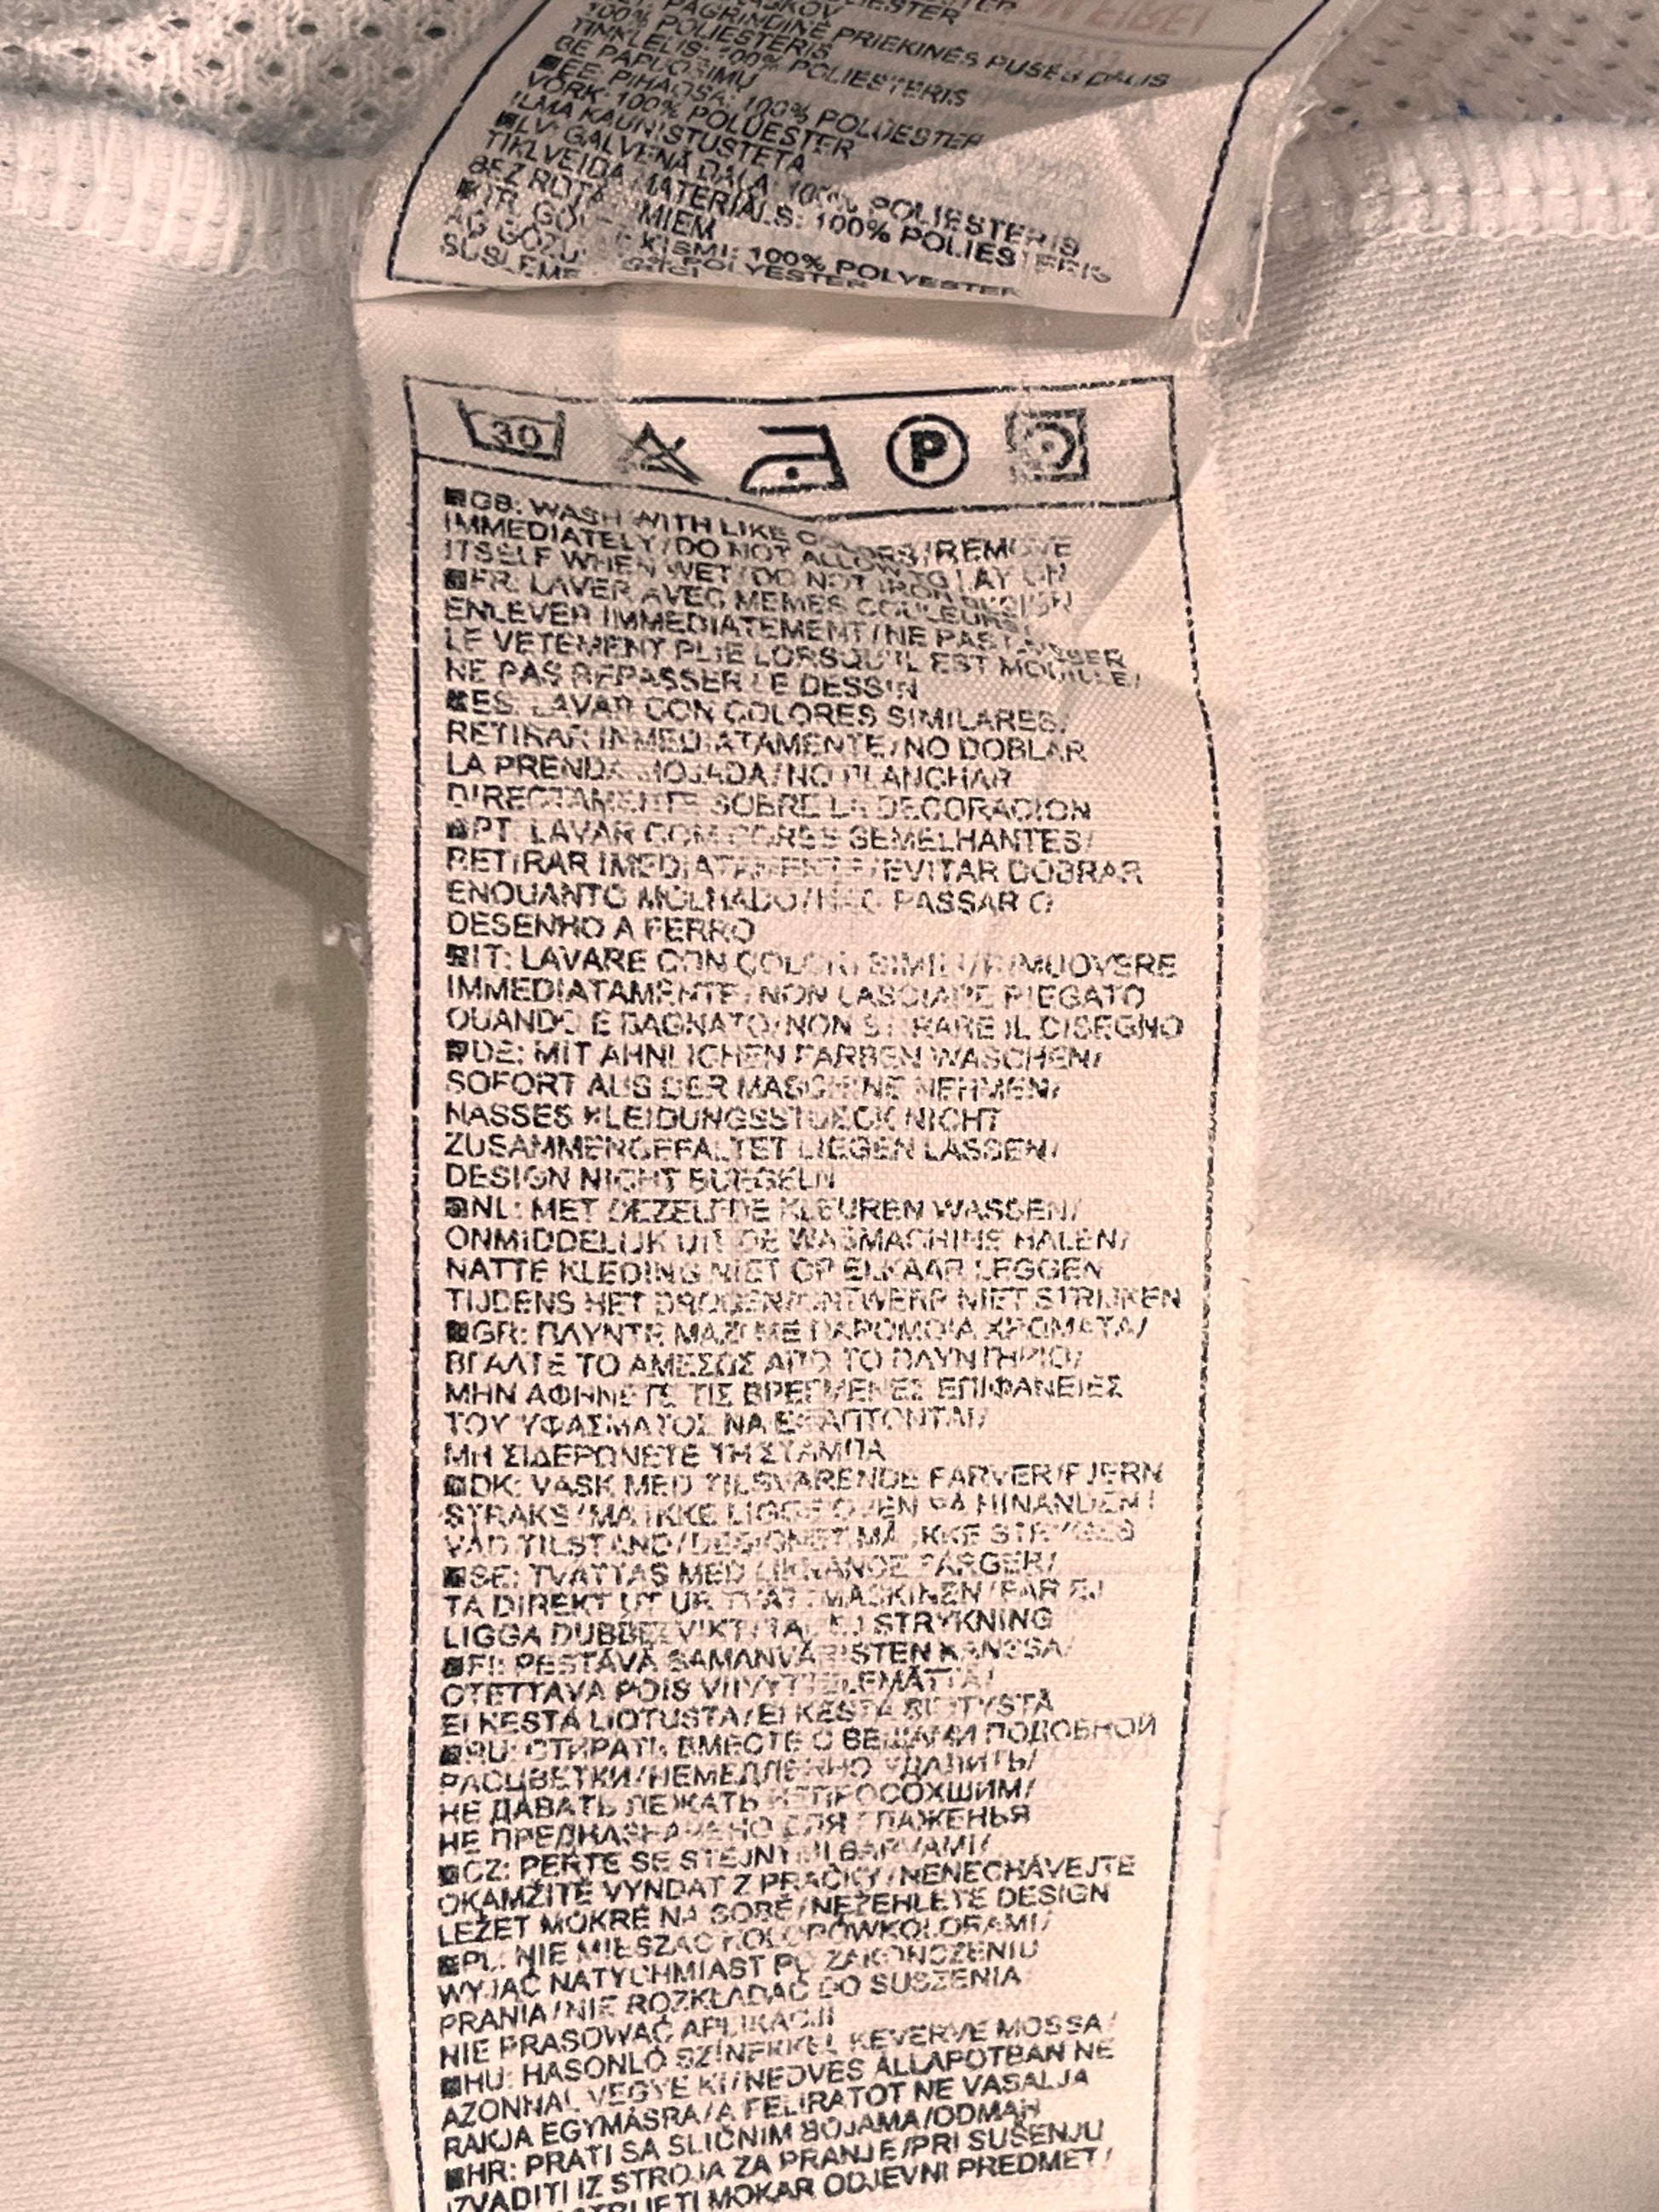 POLIESTER
PAGRINDINĖ PRIEKINĖS PUSĖS DALIS
100% POLIESTERIS
TINKLELIS: 100% POLIESTERIS
BE PAPUOŠIMŲ
EE: PIHAOSA: 100% POLÜESTER
VÕRK: 100% POLÜESTER
ILMA KAUNISTUSTETA
LV: GALVENĀ DAĻA: 100% POLIESTERIS
TĪKLVEIDA MATERIĀLS: 100% POLIESTERIS
BEZ
TR: KISMI: 100% POLYESTER
POLYESTER
SÜSLEME
30
P
GB: WASH WITH LIKE COLORS/REMOVE
IMMEDIATELY/DO NOT ALLOW TO LAY ON
ITSELF WHEN WET/DO NOT IRON DESIGN
FR: LAVER AVEC MEMES COULEURS/
ENLEVER IMMEDIATEMENT/NE PAS LAISSER
LE VETEMENT PLIE LORSQU'IL EST MOUILLE/
NE PAS REPASSER LE DESSIN
ES: LAVAR CON COLORES SIMILARES/
RETIRAR INMEDIATAMENTE/NO DOBLAR
LA PRENDA MOJADA/NO PLANCHAR
DIRECTAMENTE SOBRE LA DECORACION
PT: LAVAR COM CORES SEMELHANTES/
RETIRAR IMEDIATAMENTE/EVITAR DOBRAR
ENQUANTO MOLHADO/NAO PASSAR O
DESENHO A FERRO
IT: LAVARE CON COLORI SIMILI/RIMUOVERE
IMMEDIATAMENTE/NON LASCIARE PIEGATO
QUANDO E BAGNATO/NON STIRARE IL DISEGNO
DE: MIT AHNLICHEN FARBEN WASCHEN/
SOFORT AUS DER MASCHINE NEHMEN/
NASSES KLEIDUNGSSTUECK NICHT
ZUSAMMENGEFALTET LIEGEN LASSEN/
DESIGN NICHT BUEGELN
NL: MET DEZELFDE KLEUREN WASSEN/
ONMIDDELIJK UIT DE WASMACHINE HALEN/
NATTE KLEDING NIET OP ELKAAR LEGGEN
TIJDENS HET DROGEN/ONTWERP NIET STRIJKEN
GR: ΠΛΥΝΤΕ ΜΑΖΙ ΜΕ ΠΑΡΟΜΟΙΑ ΧΡΩΜΑΤΑ/
ΒΓΑΛΤΕ ΤΟ ΑΜΕΣΩΣ ΑΠΟ ΤΟ ΠΛΥΝΤΗΡΙΟ/
ΜΗΝ ΑΦΗΝΕΤΕ ΤΙΣ ΒΡΕΓΜΕΝΕΣ ΕΠΙΦΑΝΕΙΕΣ
ΤΟΥ ΥΦΑΣΜΑΤΟΣ ΝΑ ΕΦΑΠΤΟΝΤΑΙ/
ΜΗ ΣΙΔΕΡΩΝΕΤΕ ΤΗ ΣΤΑΜΠΑ
DK: VASK MED TILSVARENDE FARVER/FJERN
STRAKS/MA IKKE LIGGE OVEN PA HINANDEN I
VAD TILSTAND/DESIGNET MÅ IKKE STRYGES
SE: TVÄTTAS MED LIKNANDE FÄRGER/
TA DIREKT UT UR TVÄTTMASKINEN/FÅR EJ
LIGGA DUBBELVIKT/TÅL EJ STRYKNING
FI: PESTÄVÄ SAMANVÄRISTEN KANSSA/
OTETTAVA POIS VIIVYTTELEMÄTTÄ/
EI KESTÄ LIOTUSTA/EI KESTÄ SILITYSTÄ
RU: СТИРАТЬ ВМЕСТЕ С ВЕЩАМИ ПОДОБНОЙ
РАСЦВЕТКИ/НЕМЕДЛЕННО УДАЛИТЬ/
НЕ ДАВАТЬ ЛЕЖАТЬ НЕПРОСОХШИМ/
НЕ ПРЕДНАЗНАЧЕНО ДЛЯ ГЛАЖЕНЬЯ
CZ: PERTE SE STEJNÝMI BARVAMI/
OKAMŽITĚ VYNDAT Z PRAČKY/NENECHÁVEJTE
LEŽET MOKRÉ NA SOBĚ/NEŽEHLETE DESIGN
PL: NIE MIESZAĆ KOLORÓWKOLORAMI/
WYJĄĆ NATYCHMIAST PO ZAKOŃCZENIU
PRANIA/NIE ROZKŁADAĆ DO SUSZENIA
NIE PRASOWAĆ APLIKACJI
HU: HASONLÓ SZÍNEKKEL KEVERVE MOSSA/
AZONNAL VEGYE KI/NEDVES ÁLLAPOTBAN NE
RAKJA EGYMÁSRA/A FELIRATOT NE VASALJA
HR: PRATI SA SLIČNIM BOJAMA/ODMAH
IZVADITI IZ STROJA ZA PRANJE/PRI SUŠENJU
MOKAR ODJEVNI PREDMET/